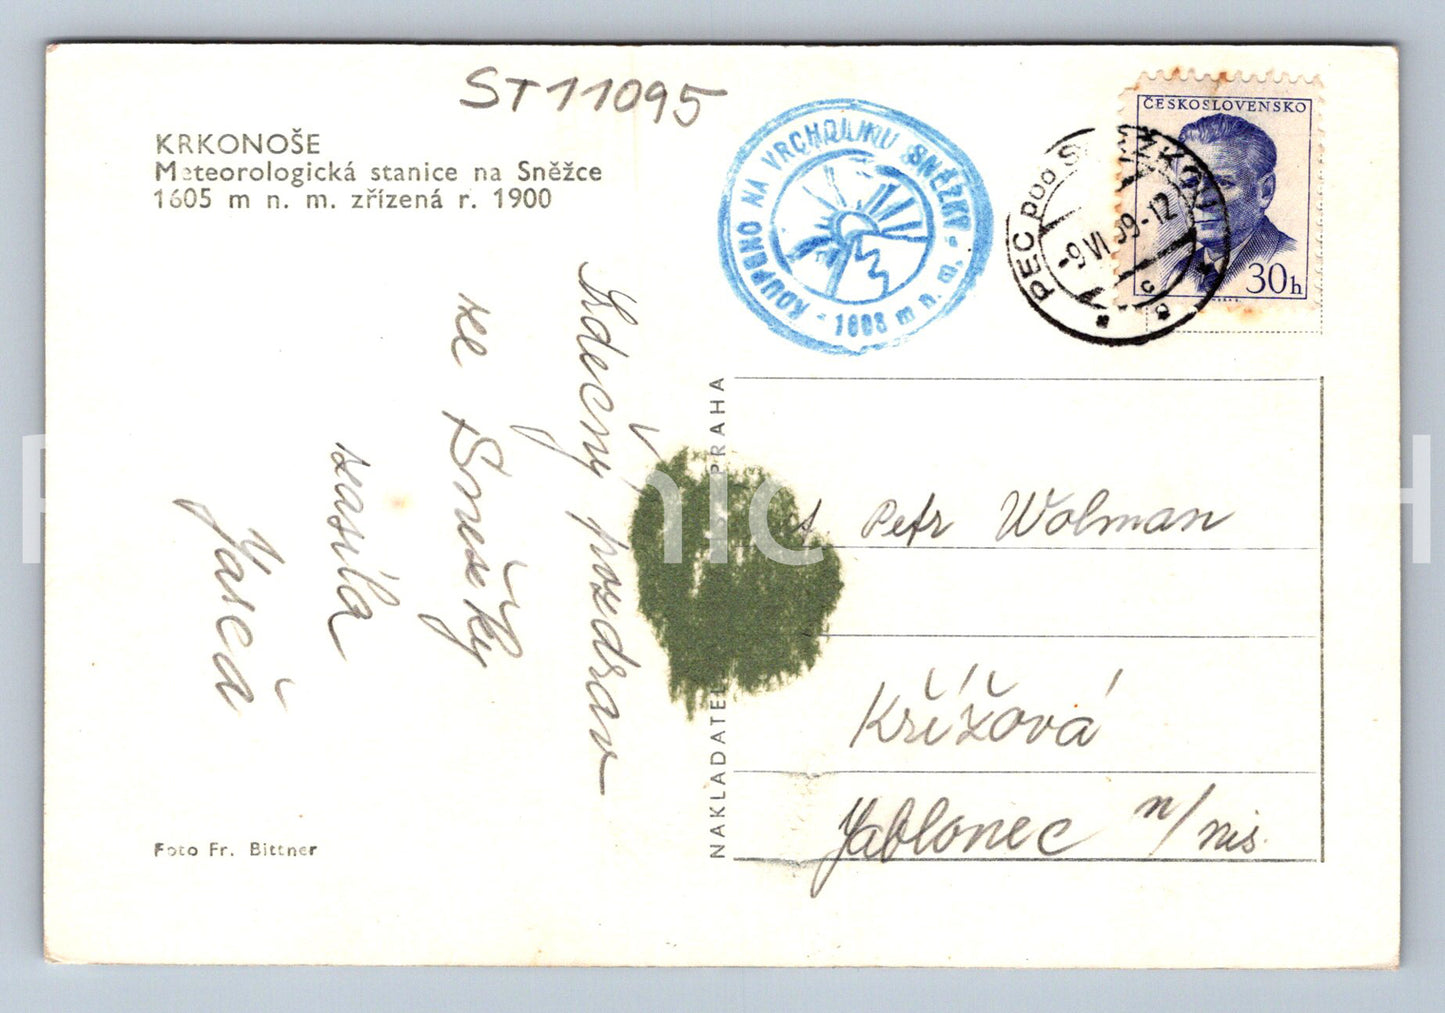 ST11095
KRKONOŠE
Meteorologická stanice na Sněžce
1605 m n. m. zřízená r. 1900
KOUPENO NA VRCHOLKU SNĚŽKY - 1605 m n. m.
ČESKOSLOVENSKO
30h
PEC POD SNĚŽKOU
-9.VI.59-12
c
Srdečný pozdrav
ze Sněžky
zasílá
NAKLADATEL
PRAHA
Petr Wolman
Křížová
Jablonec n/nis.
Foto Fr. Bittner